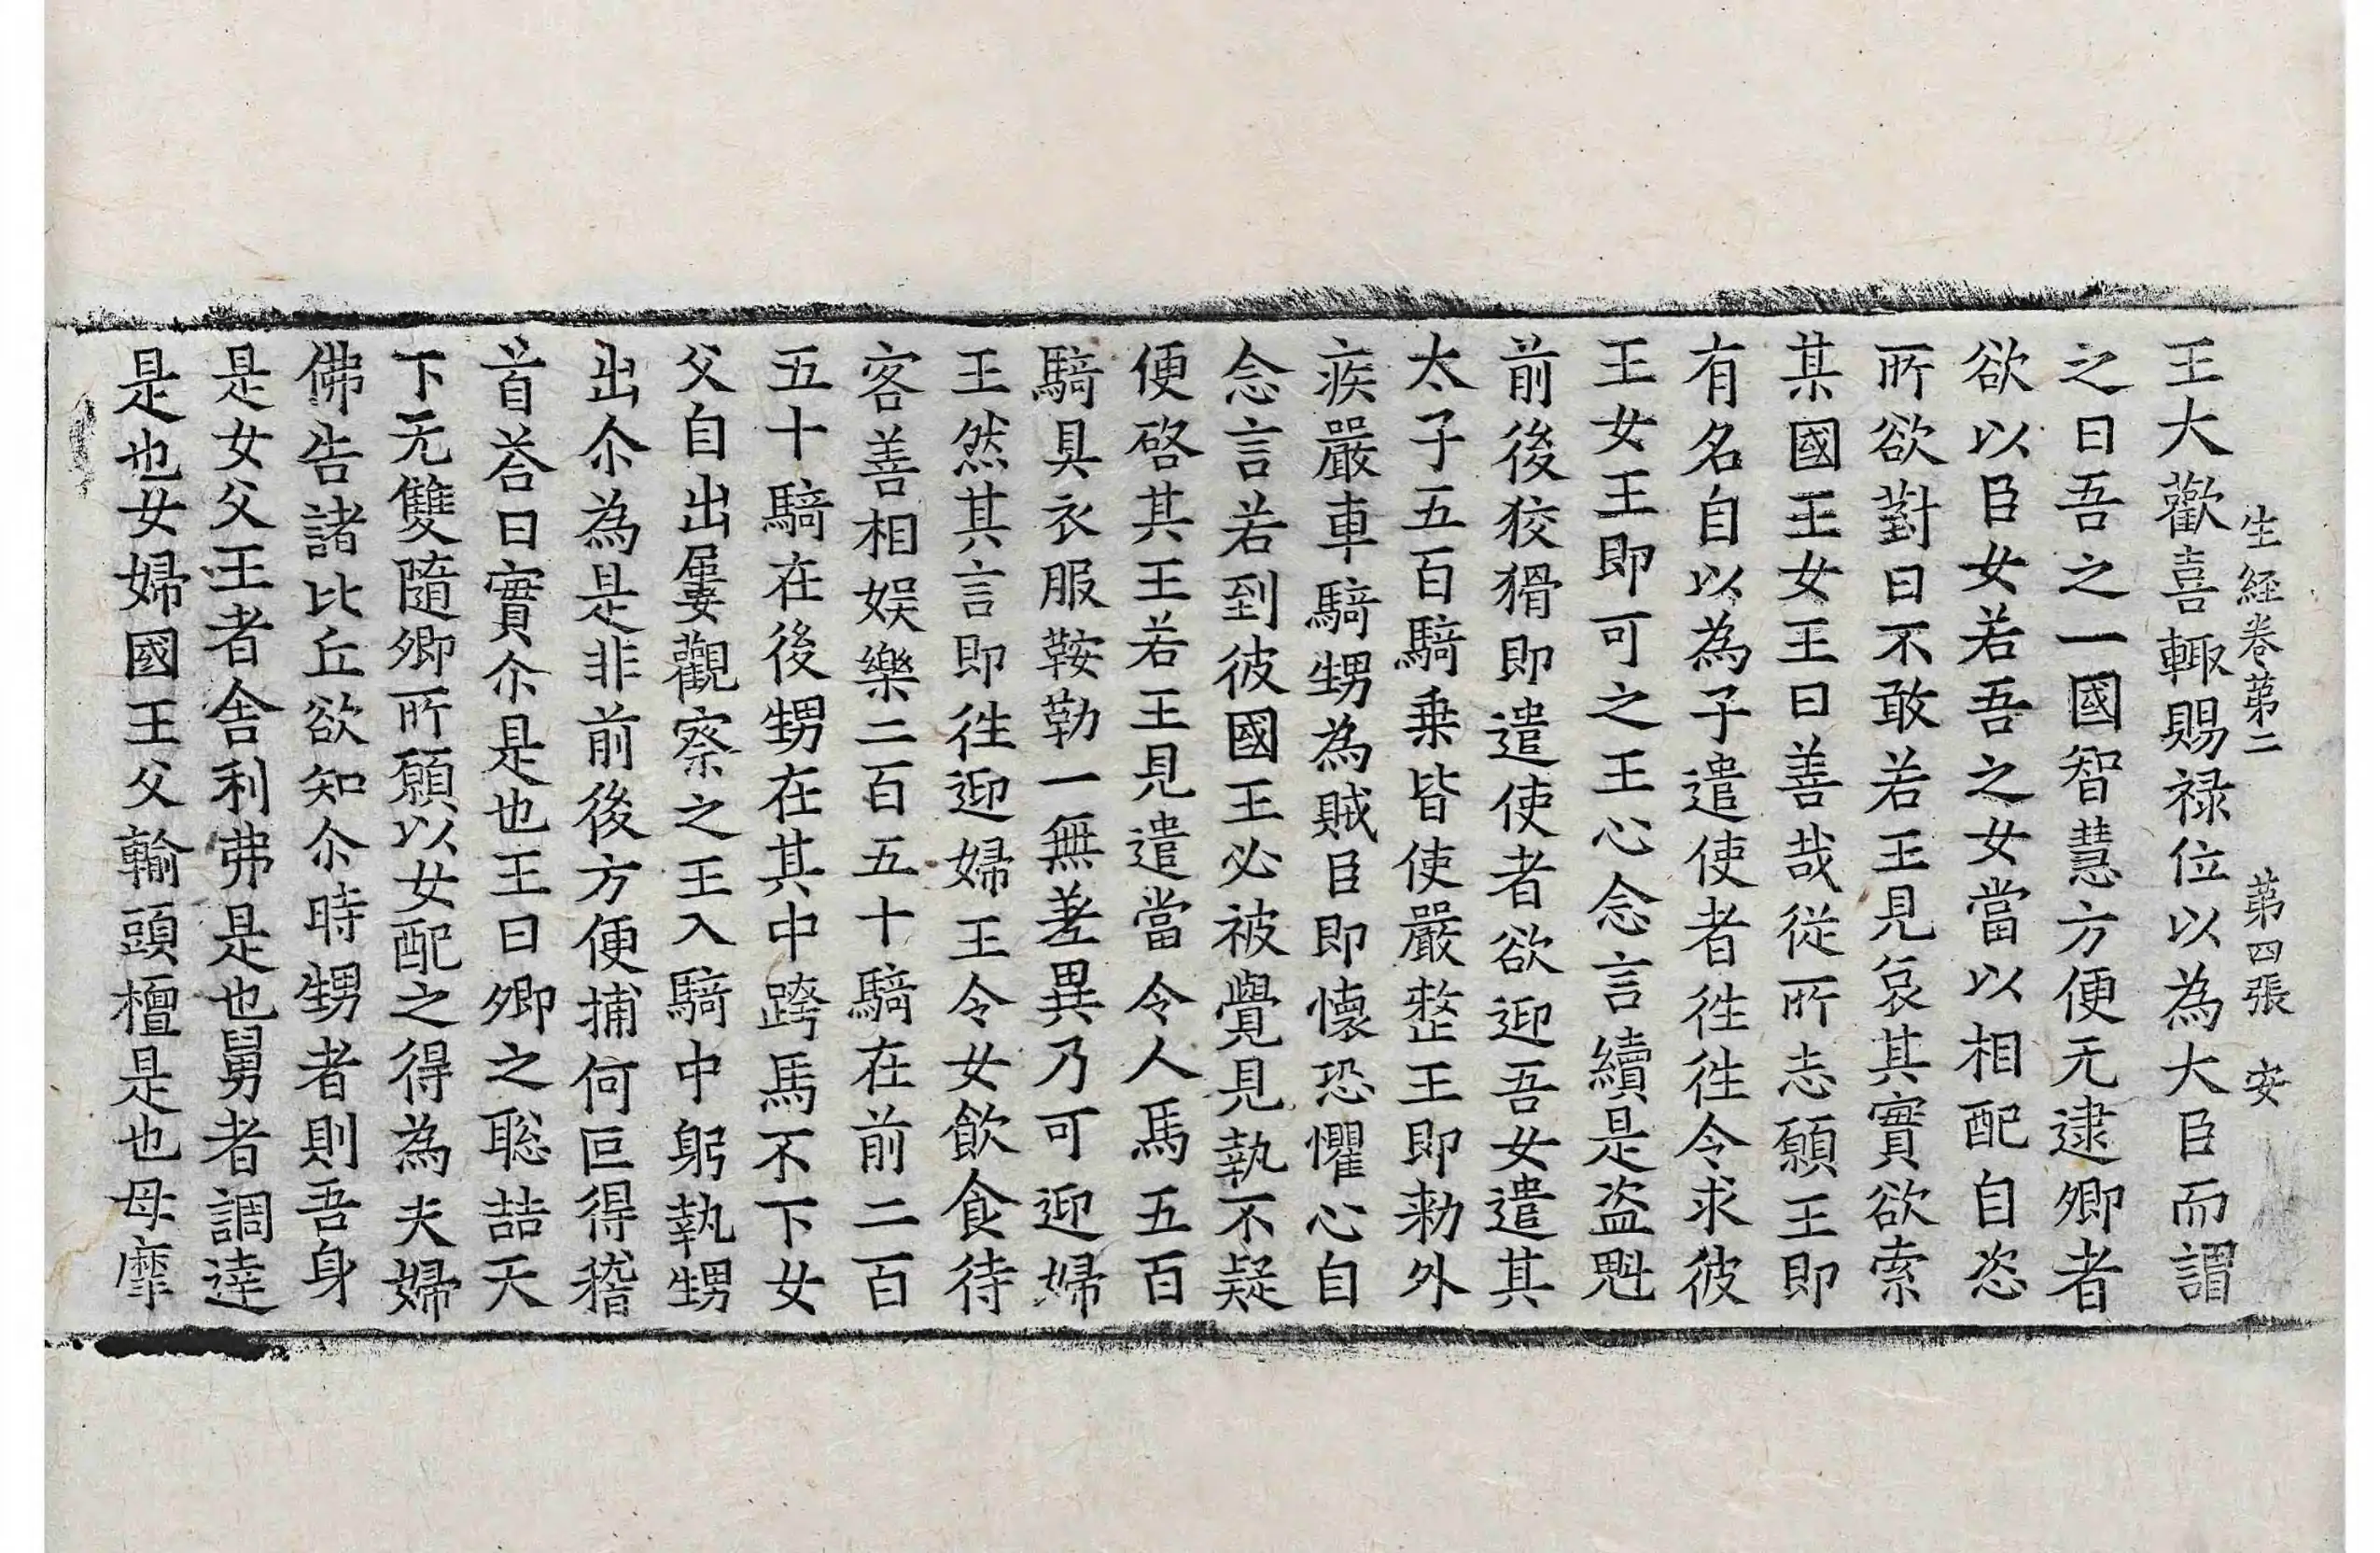 生経卷第二　第四張　安
王大歡喜輙賜禄位以為大臣而謂
之曰吾之一國智慧方便无逮卿者
欲以臣女若吾之女當以相配自恣
所欲對曰不敢若王見哀其實欲索
某國王女王曰善哉從所志願王即
有名自以為子遣使者徃徃令求彼
王女王即可之王心念言續是盗魁
前後狡猾即遣使者欲迎吾女遣其
太子五百騎乗皆使嚴整王即勑外
疾嚴車騎甥為賊臣即懷恐懼心自
念言若到彼國王必被覺見執不疑
便啓其王若王見遣當令人馬五百
騎具衣服鞍勒一無差異乃可迎婦
王然其言即徃迎婦王令女飲食待
客善相娛樂二百五十騎在前二百
五十騎在後甥在其中跨馬不下女
父自出屢觀察之王入騎中躬執甥
出尒為是非前後方便捕何叵得稽
首荅曰實尒是也王曰卿之聡喆天
下无雙隨卿所願以女配之得為夫婦
佛告諸比丘欲知尒時甥者則吾身
是女父王者舎利弗是也舅者調達
是也女婦國王父輸頭檀是也母靡